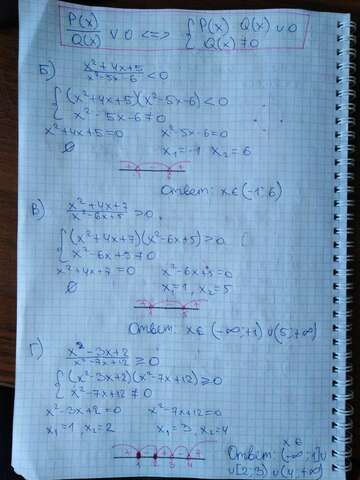 P(x)/Q(x) ∨ 0 <=> { P(x) · Q(x) ∨ 0
Q(x) ≠ 0
Б) (x²+4x+5)/(x²-5x-6) < 0
{ (x²+4x+5)(x²-5x-6) < 0
x²-5x-6 ≠ 0
x²+4x+5=0 x²-5x-6=0
∅ x₁=-1 x₂=6
Ответ: x∈(-1;6)
В) (x²+4x+7)/(x²-6x+5) > 0
{ (x²+4x+7)(x²-6x+5) > 0
x²-6x+5 ≠ 0
x²+4x+7=0 x²-6x+5=0
∅ x₁=1, x₂=5
Ответ: x∈(-∞;1)∪(5;+∞)
Г) (x²-3x+2)/(x²-7x+12) ≥ 0
{ (x²-3x+2)(x²-7x+12) ≥ 0
x²-7x+12 ≠ 0
x²-3x+2=0 x²-7x+12=0
x₁=1, x₂=2 x₁=3, x₂=4
+ - + - +
1 2 3 4
x∈
Ответ: (-∞;1]∪
∪[2;3)∪(4;+∞)